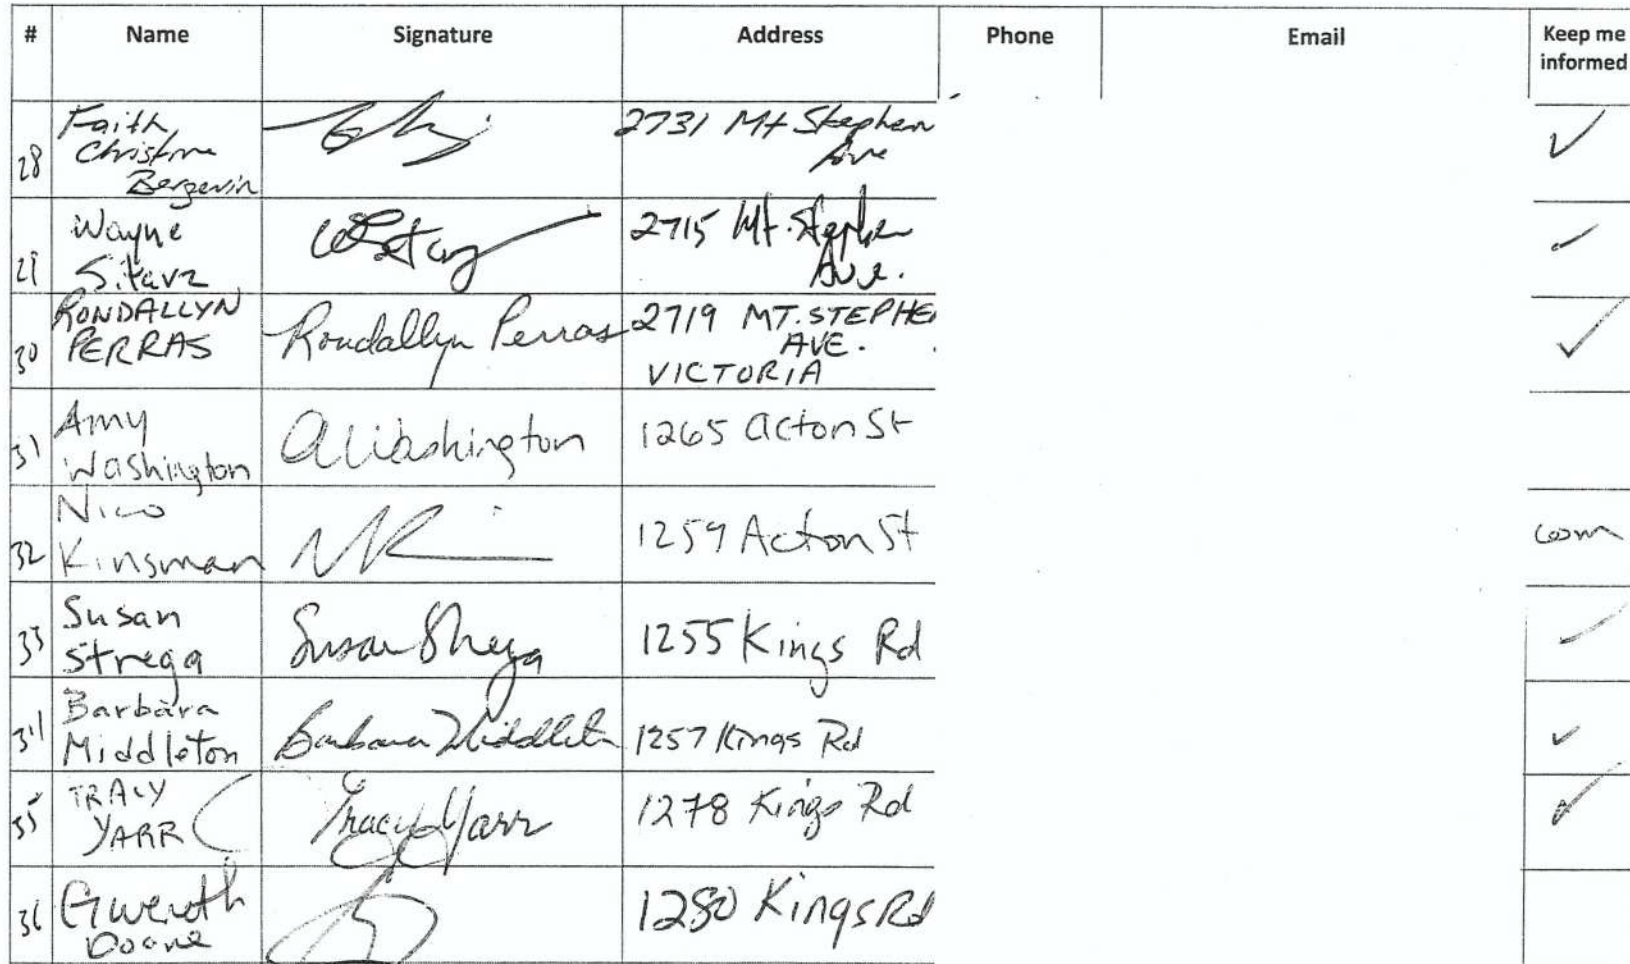 # Name Signature Address Phone Email Keep me informed
28 Faith Christine Bergevin 2731 Mt Stephen Ave
29 Wayne Sitarz 2715 Mt. Stephen Ave.
30 RONDALLYN PERRAS Rondallyn Perras 2719 MT. STEPHEN AVE. VICTORIA
31 Amy Washington A Washington 1265 Acton St
32 Nico Kinsman 1259 Acton St
33 Susan Strega Susan Strega 1255 Kings Rd
34 Barbara Middleton Barbara Middleton 1257 Kings Rd
35 TRACY YARR Tracy Yarr 1278 Kings Rd
36 Gwenoth Doane 1280 Kings Rd